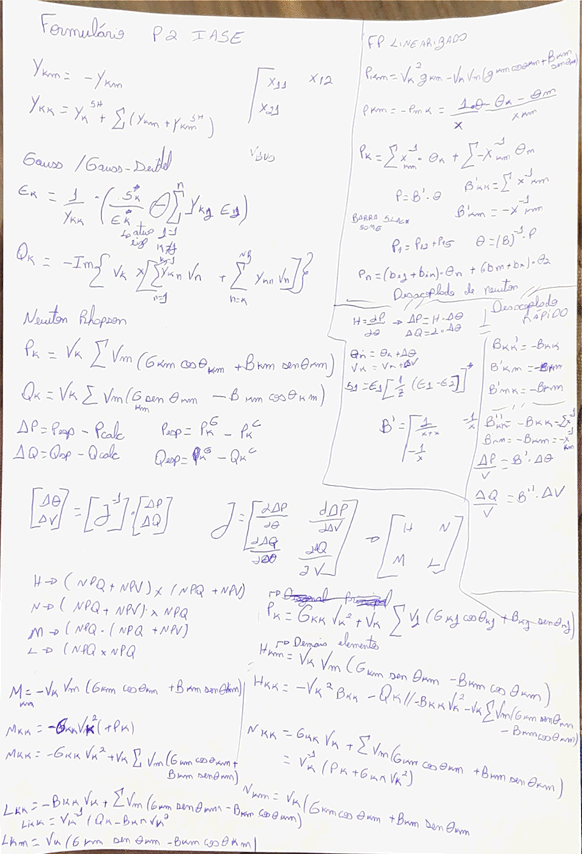 Formulário P2 IASE
Ykm = -ykm
Ykk = Yk^SH + Σ(Ykm + Ykm^SH)
[ x11 x12
x21
Gauss /Gauss-Deidel
Ek = 1/Ykk · (Sk*/Ek* ⊖ Σ^n Ykj Ej)
Qk = -Im{ Vk x [Σ Ykn Vn + Σ Ynn Vn]}
n=1
Newton Rhapson
Pk = Vk Σ Vm (Gkm cosθkm + Bkm senθkm)
Qk = Vk Σ Vm (Gkm sen θkm - Bkm cosθkm)
ΔP = Pesp - Pcalc Pesp = Pk^G - Pk^C
ΔQ = Qesp - Qcalc Qesp = Pk^G - Qk^C
[Δθ ΔV] = [J^-1] · [ΔP ΔQ] J = [∂ΔP/∂θ ∂ΔP/∂V ∂ΔQ/∂θ ∂ΔQ/∂V] → [H N M L]
H → (NPQ + NPV) x (NPQ + NPV)
N → (NPQ + NPV) x NPQ
M → (NPQ · (NPQ + NPV)
L → (NPQ x NPQ
Mkm = -Vk Vm (Gkm cosθkm + Bkm senθkm)
Mkk = -GkkVk²(+Pk)
Mkk = -Gkk Vk² + Vk Σ Vm (Gkm cosθkm + Bkm senθkm)
Lkk = -Bkk Vk + Σ Vm (Gkm senθkm - Bkm cosθkm)
Lkk = Vk^-1 (Qk - Bkk Vk²
Lkm = Vk (Gkm sen θkm - Bkm cosθkm)
FP LINEARIZADO
Pkm = Vk² gkm - Vk Vm (gkm cosθkm + Bkm senθkm)
Pkm = -Pmk = 1/x · θ = θk - θm / xkm
Pk = Σ x^-1km · θk + Σ -x^-1km θm
P = B' · θ B'kk = Σ x^-1km
B'km = -x^-1km
BARRA SLACK SOME
P1 = P12 + P15 θ = (B)^-1 · P
Desacoplado de newton
H = ∂P/∂θ → ΔP = H · Δθ
ΔQ = L · Δθ
θk = θk + Δθ
Vk = Vk + ΔV
S1 = E1 [1/Z (E1 - E2)]*
B' = [ 1/x+x -1/x
-1/x
Desacoplado RÁPIDO
Bkk' = -Bkk
B'km = -Bkm
B'mk = -Bkm
B''kk = -Bkk = Σx^-1
Bkm = -Bkm = -x^-1km
ΔP/V = B' · Δθ
ΔQ/V = B'' · ΔV
Pk = Gkk Vk² + Vk Σ Vj (Gkj cosθkj + Bkj senθkj)
→ Demais elementos
Hkm = Vk Vm (Gkm sen θkm - Bkm cosθkm)
Hkk = -Vk² Bkk - Qk // -Bkk Vk² - Vk Σ Vm (Gkm senθkm - Bkm cosθkm)
Nkk = Gkk Vk + Σ Vm (Gkm cosθkm + Bkm senθkm)
= Vk^-1 (Pk + Gkk Vk²)
Nkm = Vk (Gkm cosθkm + Bkm senθkm